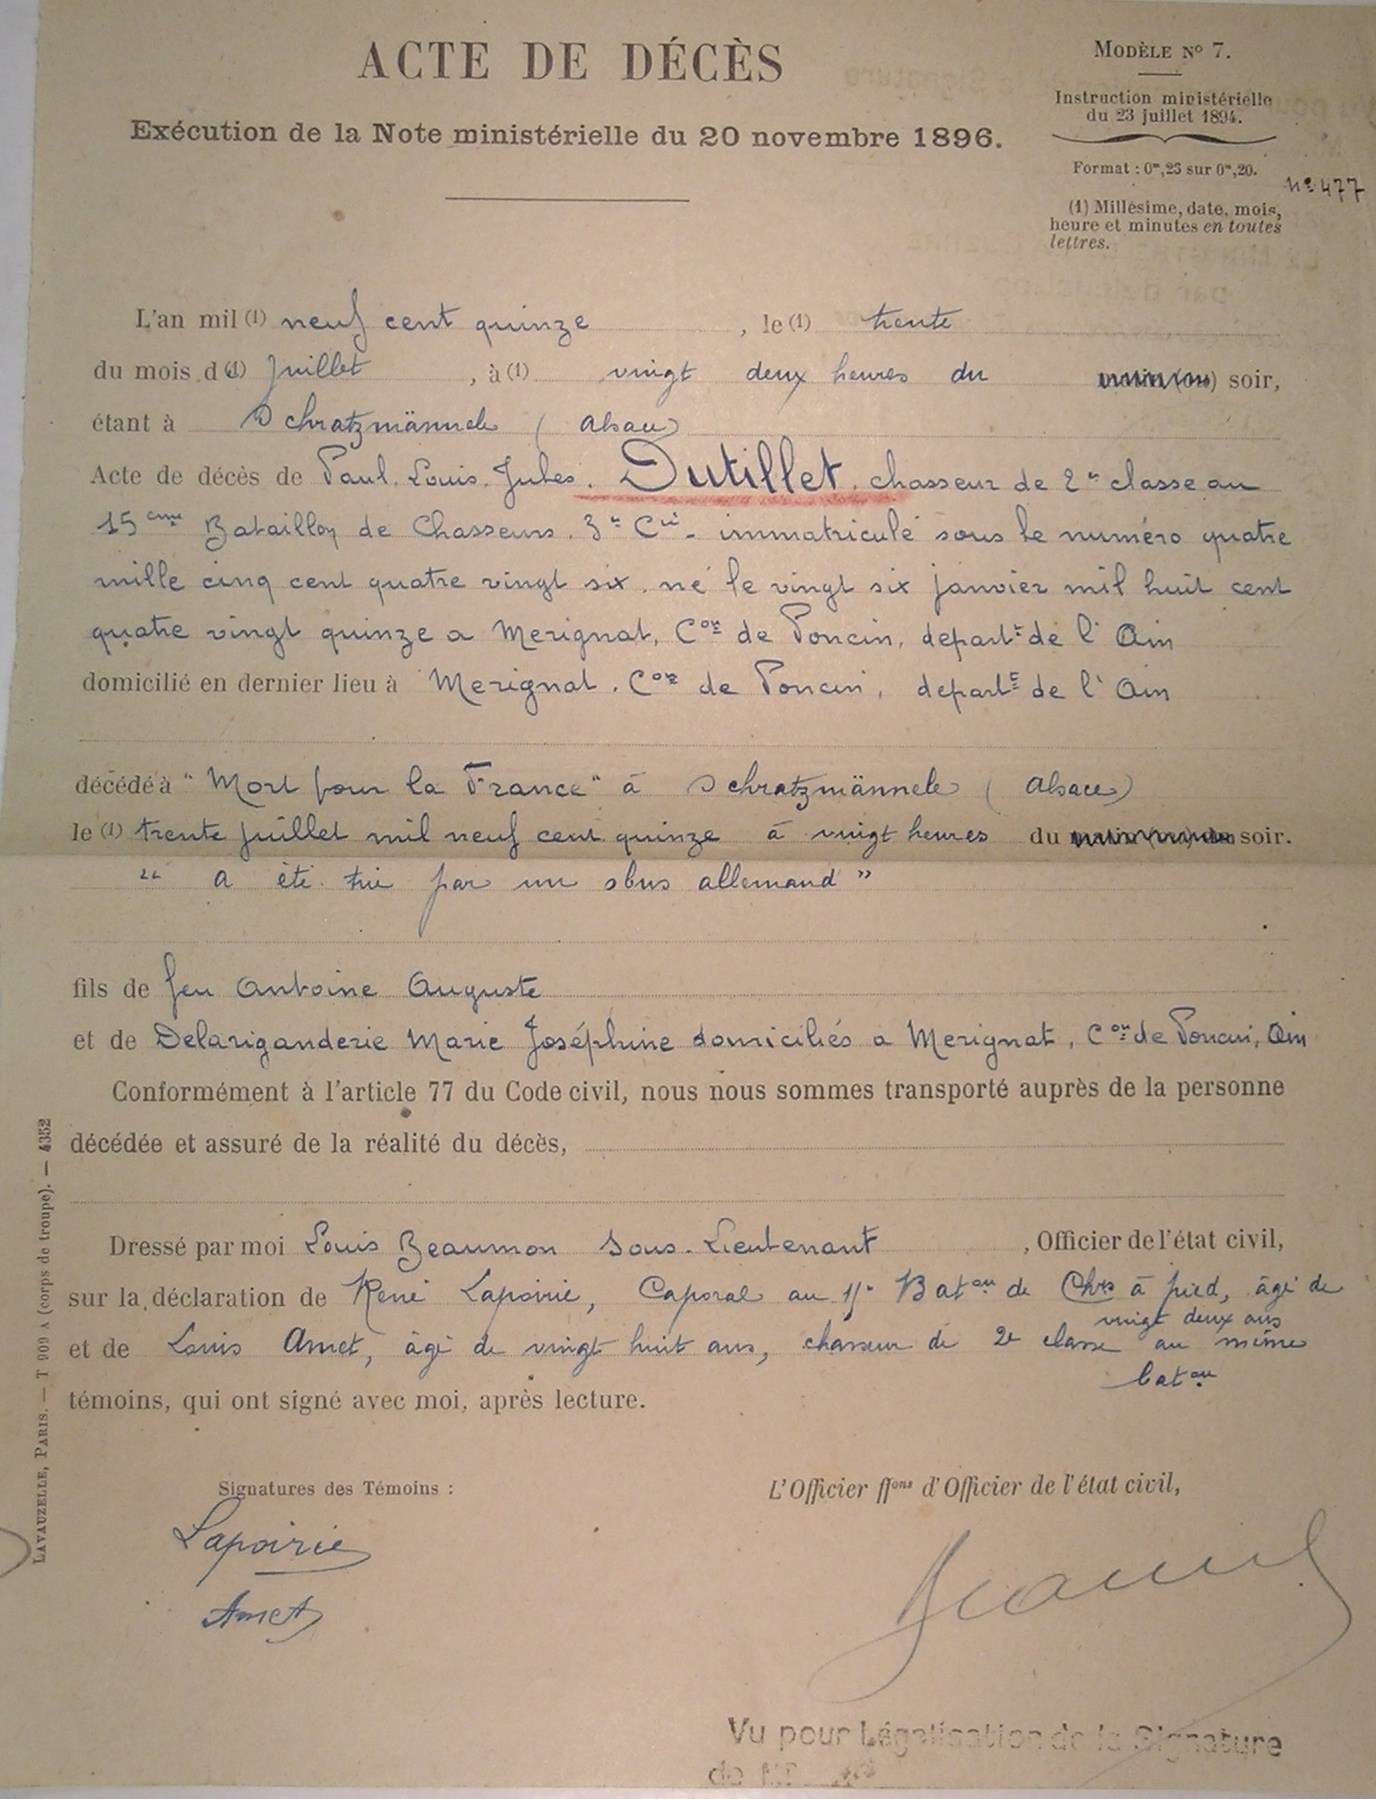 ACTE DE DÉCÈS
Exécution de la Note ministérielle du 20 novembre 1896.
MODÈLE Nº 7.
Instruction ministérielle
du 23 juillet 1894.
Format : 0ᵐ,25 sur 0ᵐ,20.
Nº 477
(1) Millésime, date, mois,
heure et minutes en toutes
lettres.
L'an mil (1) neuf cent quinze , le (1) trente
du mois d (1) Juillet , à (1) vingt deux heures du soir,
étant à Schratzmännele (Alsace)
Acte de décès de Paul. Louis. Jules. Dutillet. chasseur de 2ᵉ classe au
15ème Bataillon de Chasseurs. 3ᵉ Cie - immatriculé sous le numéro quatre
mille cinq cent quatre vingt six. né le vingt six janvier mil huit cent
quatre vingt quinze a Merignat, Con de Poncin, depart.t de l'Ain
domicilié en dernier lieu à Merignat. Con de Poncin, depart.t de l'Ain
décédé à "Mort pour la France" à Schratzmännele (Alsace)
le (1) trente Juillet mil neuf cent quinze à vingt heures du soir.
"a été tué par un obus allemand"
fils de feu Antoine Auguste
et de Delariganderie Marie Joséphine domiciliés a Merignat, Con de Poncin, Ain
Conformément à l'article 77 du Code civil, nous nous sommes transporté auprès de la personne
décédée et assuré de la réalité du décès,
Dressé par moi Louis Beaumon Sous-Lieutenant , Officier de l'état civil,
sur la déclaration de René Lapoirie, Caporal au Batou de Chrs à pied, âgé de
vingt deux ans
et de Louis Amet, âgé de vingt huit ans, chasseur de 2e classe au même
batou
témoins, qui ont signé avec moi, après lecture.
Signatures des Témoins :
L'Officier ffons d'Officier de l'état civil,
Lapoirie
Amet
Vu pour Légalisation de la Signature
de M
LAVAUZELLE, PARIS. — T 909 A (corps de troupe). — 4352